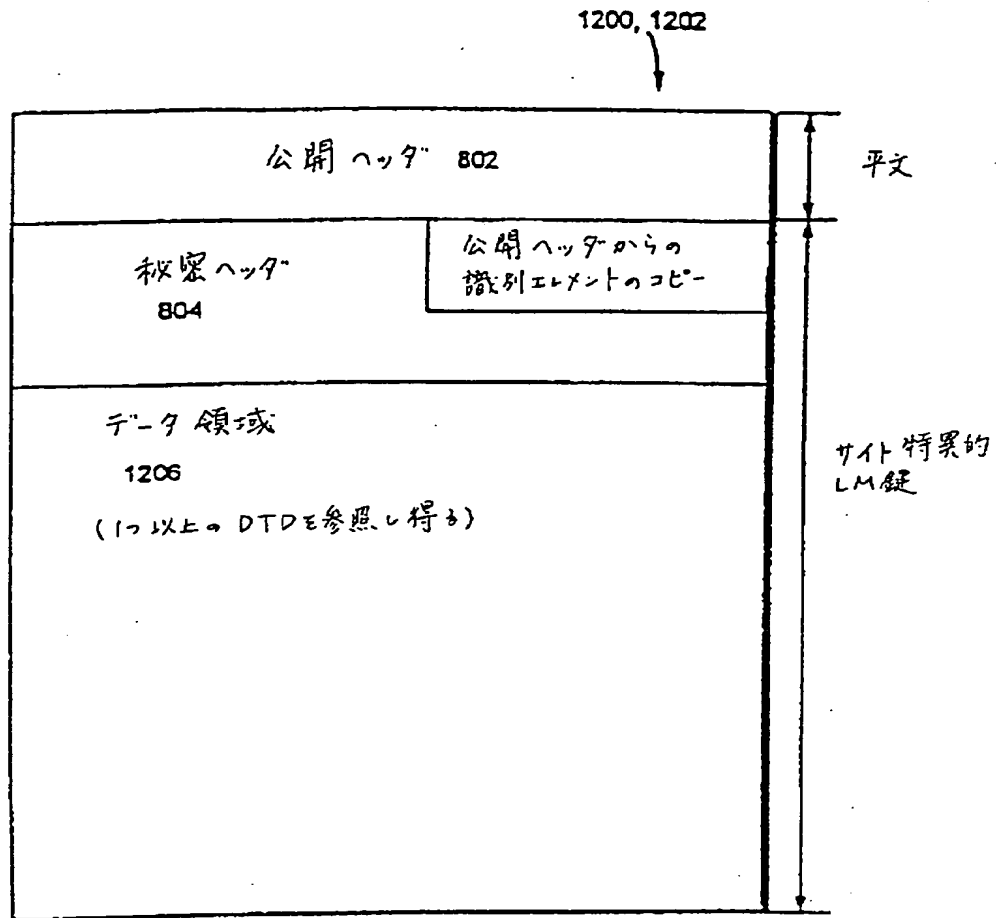 1200, 1202
公開ヘッダ 802
平文
秘密ヘッダ
804
公開ヘッダからの
識別エレメントのコピー
データ領域
1206
(1つ以上のDTDを参照し得る)
サイト特異的
LM錠